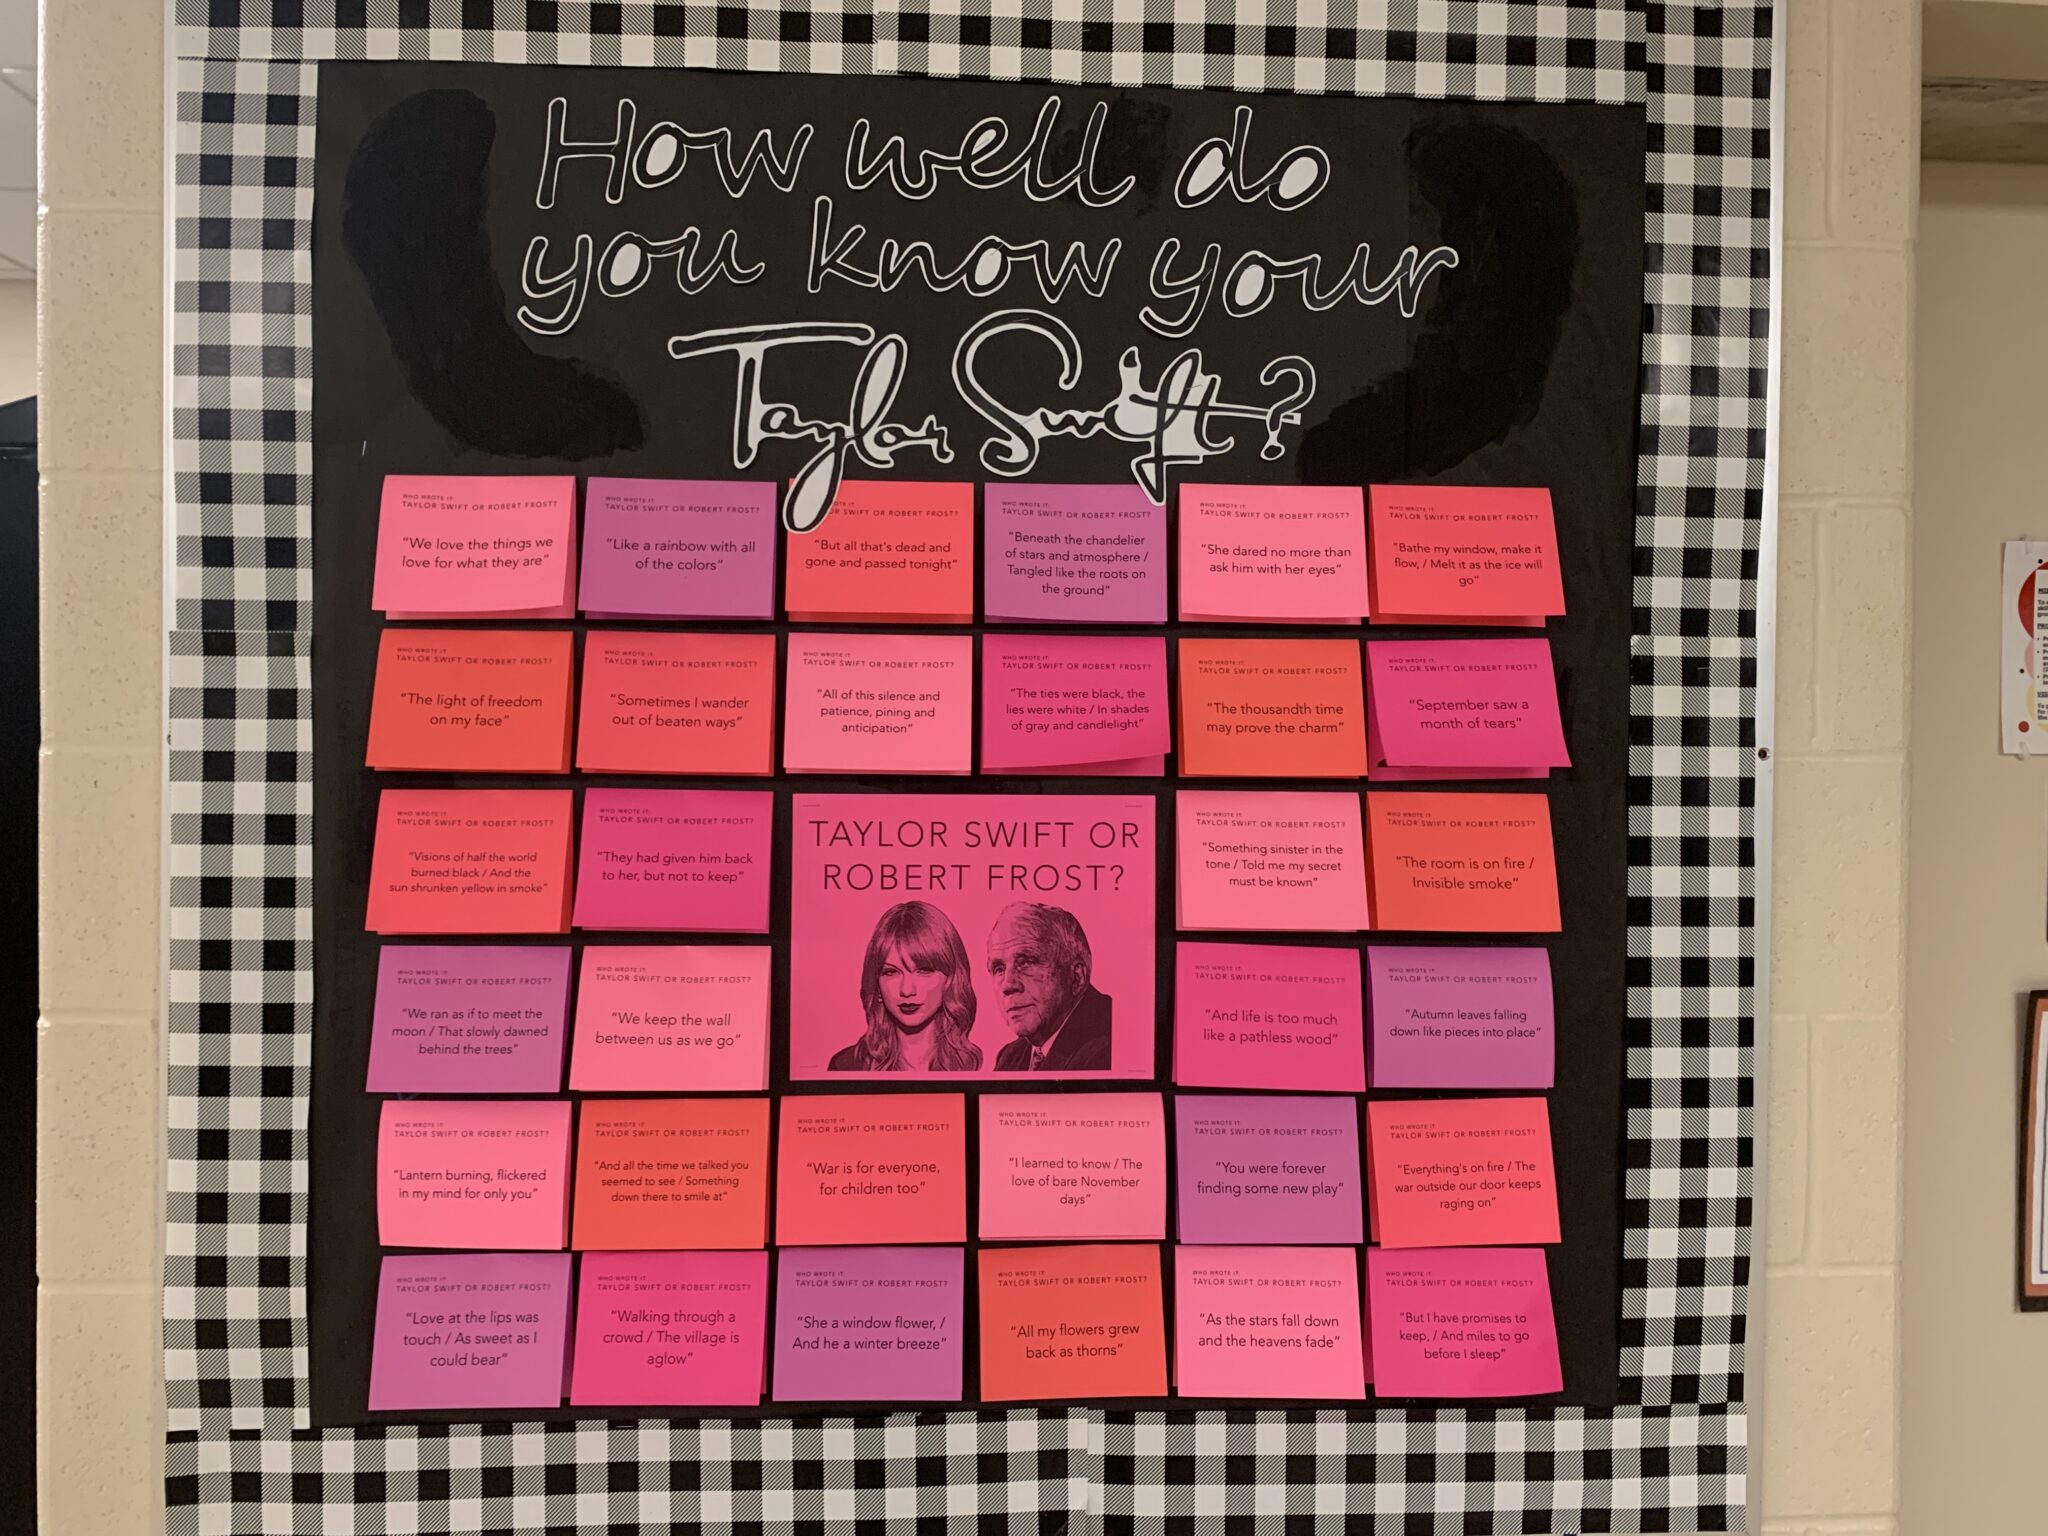 How well do
you know your
Taylor Swift?
WHO WROTE IT:
TAYLOR SWIFT OR ROBERT FROST?
"We love the things we
love for what they are"
WHO WROTE IT:
TAYLOR SWIFT OR ROBERT FROST?
"Like a rainbow with all
of the colors"
OR SWIFT OR ROBERT FROST?
"But all that's dead and
gone and passed tonight"
WHO WROTE IT:
TAYLOR SWIFT OR ROBERT FROST?
"Beneath the chandelier
of stars and atmosphere /
Tangled like the roots on
the ground"
WHO WROTE IT:
TAYLOR SWIFT OR ROBERT FROST?
"She dared no more than
ask him with her eyes"
WHO WROTE IT:
TAYLOR SWIFT OR ROBERT FROST?
"Bathe my window, make it
flow, / Melt it as the ice will
go"
WHO WROTE IT:
TAYLOR SWIFT OR ROBERT FROST?
"The light of freedom
on my face"
WHO WROTE IT:
TAYLOR SWIFT OR ROBERT FROST?
"Sometimes I wander
out of beaten ways"
WHO WROTE IT:
TAYLOR SWIFT OR ROBERT FROST?
"All of this silence and
patience, pining and
anticipation"
WHO WROTE IT:
TAYLOR SWIFT OR ROBERT FROST?
"The ties were black, the
lies were white / In shades
of gray and candlelight"
WHO WROTE IT:
TAYLOR SWIFT OR ROBERT FROST?
"The thousandth time
may prove the charm"
WHO WROTE IT:
TAYLOR SWIFT OR ROBERT FROST?
"September saw a
month of tears"
WHO WROTE IT:
TAYLOR SWIFT OR ROBERT FROST?
"Visions of half the world
burned black / And the
sun shrunken yellow in smoke"
WHO WROTE IT:
TAYLOR SWIFT OR ROBERT FROST?
"They had given him back
to her, but not to keep"
TAYLOR SWIFT OR
ROBERT FROST?
WHO WROTE IT:
TAYLOR SWIFT OR ROBERT FROST?
"Something sinister in the
tone / Told me my secret
must be known"
WHO WROTE IT:
TAYLOR SWIFT OR ROBERT FROST?
"The room is on fire /
Invisible smoke"
WHO WROTE IT:
TAYLOR SWIFT OR ROBERT FROST?
"We ran as if to meet the
moon / That slowly dawned
behind the trees"
WHO WROTE IT:
TAYLOR SWIFT OR ROBERT FROST?
"We keep the wall
between us as we go"
WHO WROTE IT:
TAYLOR SWIFT OR ROBERT FROST?
"And life is too much
like a pathless wood"
WHO WROTE IT:
TAYLOR SWIFT OR ROBERT FROST?
"Autumn leaves falling
down like pieces into place"
WHO WROTE IT:
TAYLOR SWIFT OR ROBERT FROST?
"Lantern burning, flickered
in my mind for only you"
WHO WROTE IT:
TAYLOR SWIFT OR ROBERT FROST?
"And all the time we talked you
seemed to see / Something
down there to smile at"
WHO WROTE IT:
TAYLOR SWIFT OR ROBERT FROST?
"War is for everyone,
for children too"
WHO WROTE IT:
TAYLOR SWIFT OR ROBERT FROST?
"I learned to know / The
love of bare November
days"
WHO WROTE IT:
TAYLOR SWIFT OR ROBERT FROST?
"You were forever
finding some new play"
WHO WROTE IT:
TAYLOR SWIFT OR ROBERT FROST?
"Everything's on fire / The
war outside our door keeps
raging on"
WHO WROTE IT:
TAYLOR SWIFT OR ROBERT FROST?
"Love at the lips was
touch / As sweet as I
could bear"
WHO WROTE IT:
TAYLOR SWIFT OR ROBERT FROST?
"Walking through a
crowd / The village is
aglow"
WHO WROTE IT:
TAYLOR SWIFT OR ROBERT FROST?
"She a window flower, /
And he a winter breeze"
WHO WROTE IT:
TAYLOR SWIFT OR ROBERT FROST?
"All my flowers grew
back as thorns"
WHO WROTE IT:
TAYLOR SWIFT OR ROBERT FROST?
"As the stars fall down
and the heavens fade"
WHO WROTE IT:
TAYLOR SWIFT OR ROBERT FROST?
"But I have promises to
keep, / And miles to go
before I sleep"